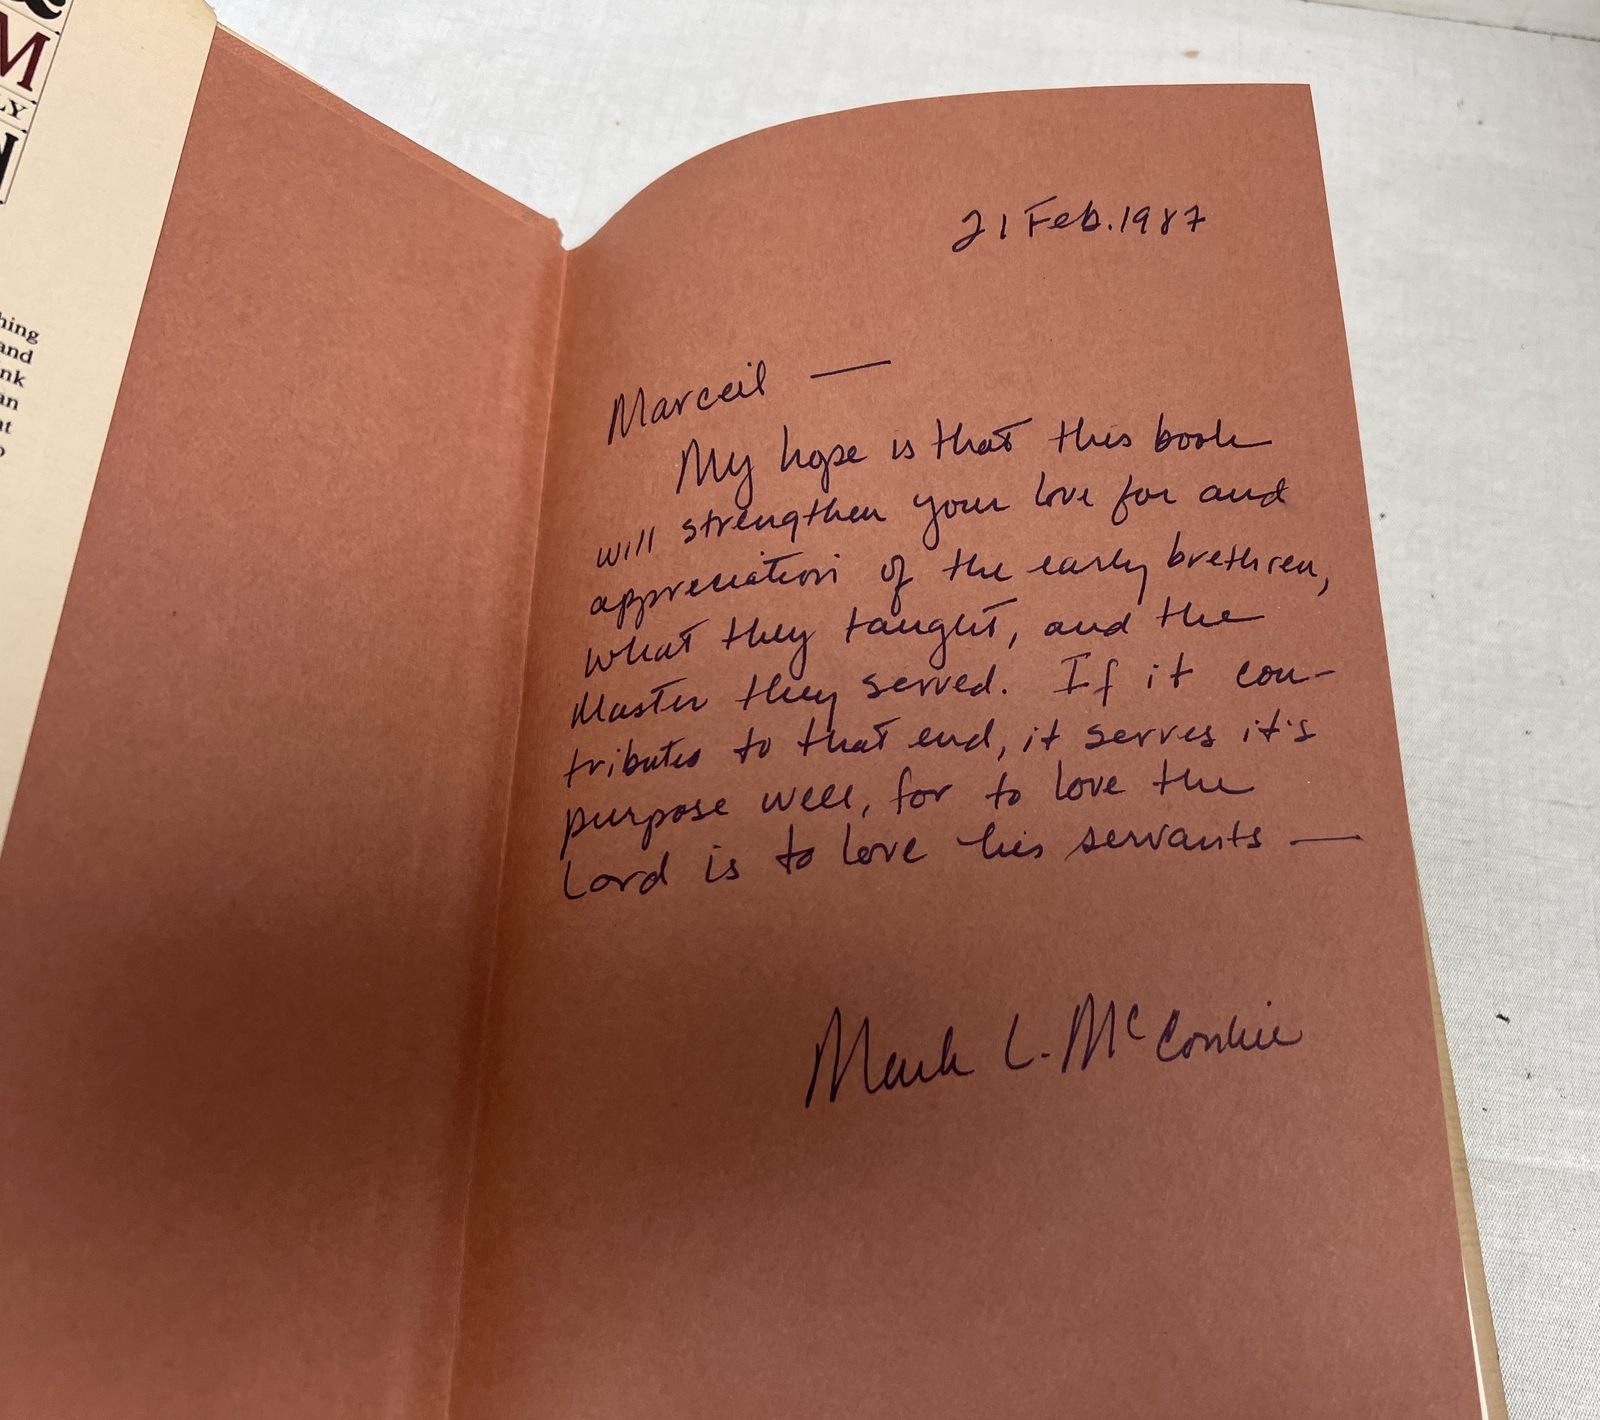 M
LY
N
hing
and
nk
an
at
o
21 Feb. 1987
Marceil —
My hope is that this book
will strengthen your love for and
appreciation of the early brethren,
what they taught, and the
Master they served. If it con-
tributes to that end, it serves it's
purpose well, for to love the
Lord is to love his servants —
Mark L. McConkie